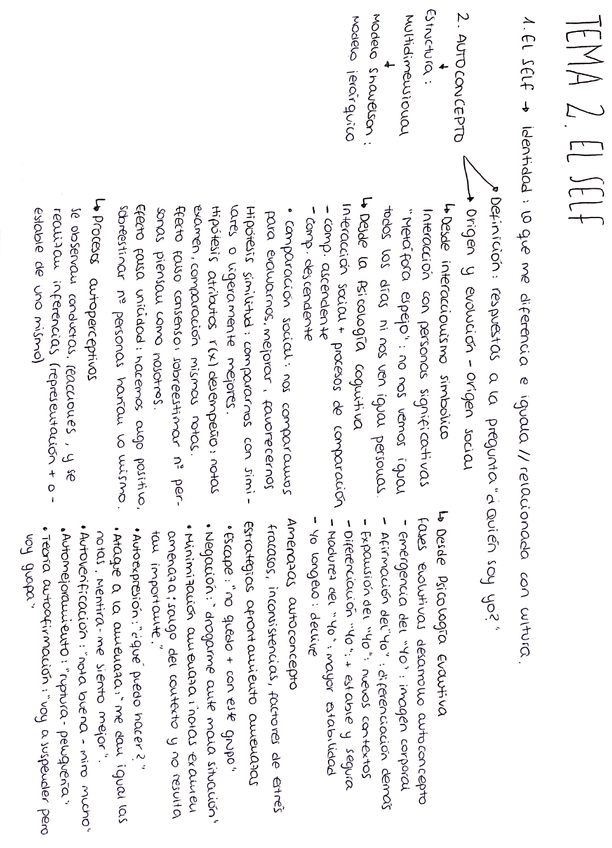 TEMA 2. EL SELF
1. EL SELF → Identidad: lo que me diferencia e iguala // relacionado con cultura.
2. AUTOCONCEPTO
Definición: respuestas a la pregunta "¿Quién soy yo?"
Origen y evolución - origen social
Estructura:
Multidimensional
Modelo Shavelson:
Modelo jerárquico
↳ Desde interaccionismo simbólico
Interacción con personas significativas
"Metáfora espejo": no nos vemos igual
todos los días ni nos ven igual personas.
↳ Desde la Psicología cognitiva
Interacción social + procesos de comparación
- comp. ascendente
- comp. descendente
• Comparación social: nos comparamos
para evaluarnos, mejorar, favorecernos
Hipótesis similitud: compararnos con simi-
lares o ligeramente mejores.
Hipótesis atributos r(x) desempeño: notas
examen, comparación mismas notas.
Efecto falso consenso: sobreestimar nº per-
sonas piensan como nosotros.
Efecto falsa unicidad: hacemos algo positivo,
sobreestimar nº personas harían lo mismo.
↳ Procesos autoperceptivos
Se observan conductas, reacciones, y se
realizan inferencias (representación + o -
estable de uno mismo)
↳ Desde Psicología Evolutiva
Fases evolutivas desarrollo autoconcepto
- Emergencia del "Yo": imagen corporal
- Afirmación del "Yo": diferenciación demás
- Expansión del "Yo": nuevos contextos
- Diferenciación "Yo": + estable y segura
- Madurez del "Yo": mayor estabilidad
- Yo longevo: declive
Amenazas autoconcepto
fracasos, inconsistencias, factores de estrés
Estrategias afrontamiento amenazas
• Escape: "no quedo + con este grupo"
• Negación: "drogarme ante mala situación"
• Minimización amenaza: notas examen
amenaza; salgo del contexto y no resulta
tan importante."
• Autoexpresión: "¿qué puedo hacer?"
• Ataque a la amenaza: "me dan igual las
notas. Mentira - me siento mejor".
• Autoverificación: "nota buena - miro mucho"
• Automejoramiento: "ruptura - peluquería"
• Teoría autoafirmación: "voy a suspender pero
voy guapa"